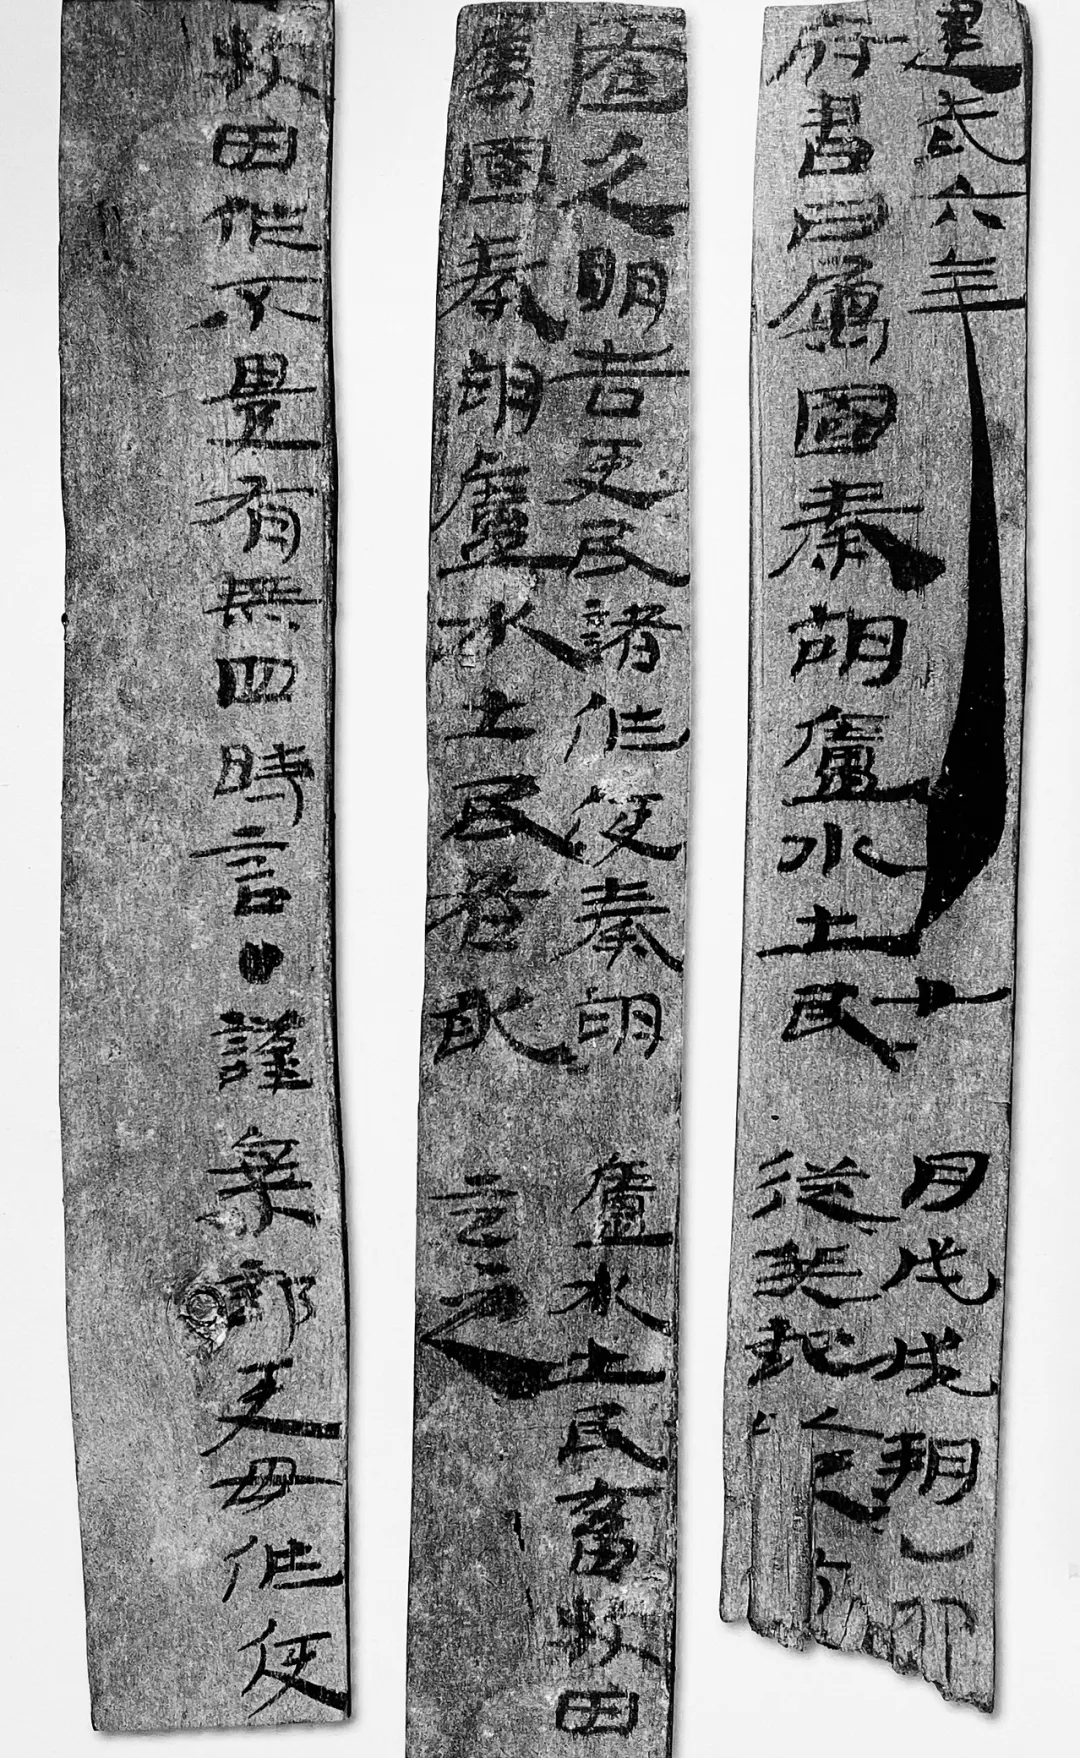 建武六年七月戊戌朔乙卯
府書曰屬國秦胡盧水士民從兵起以
匿之明告吏民諸作使秦胡盧水士民畜牧田
屬國秦胡盧水士民者敢言之
牧田作不遣有無四時言●謹案部吏毋作使